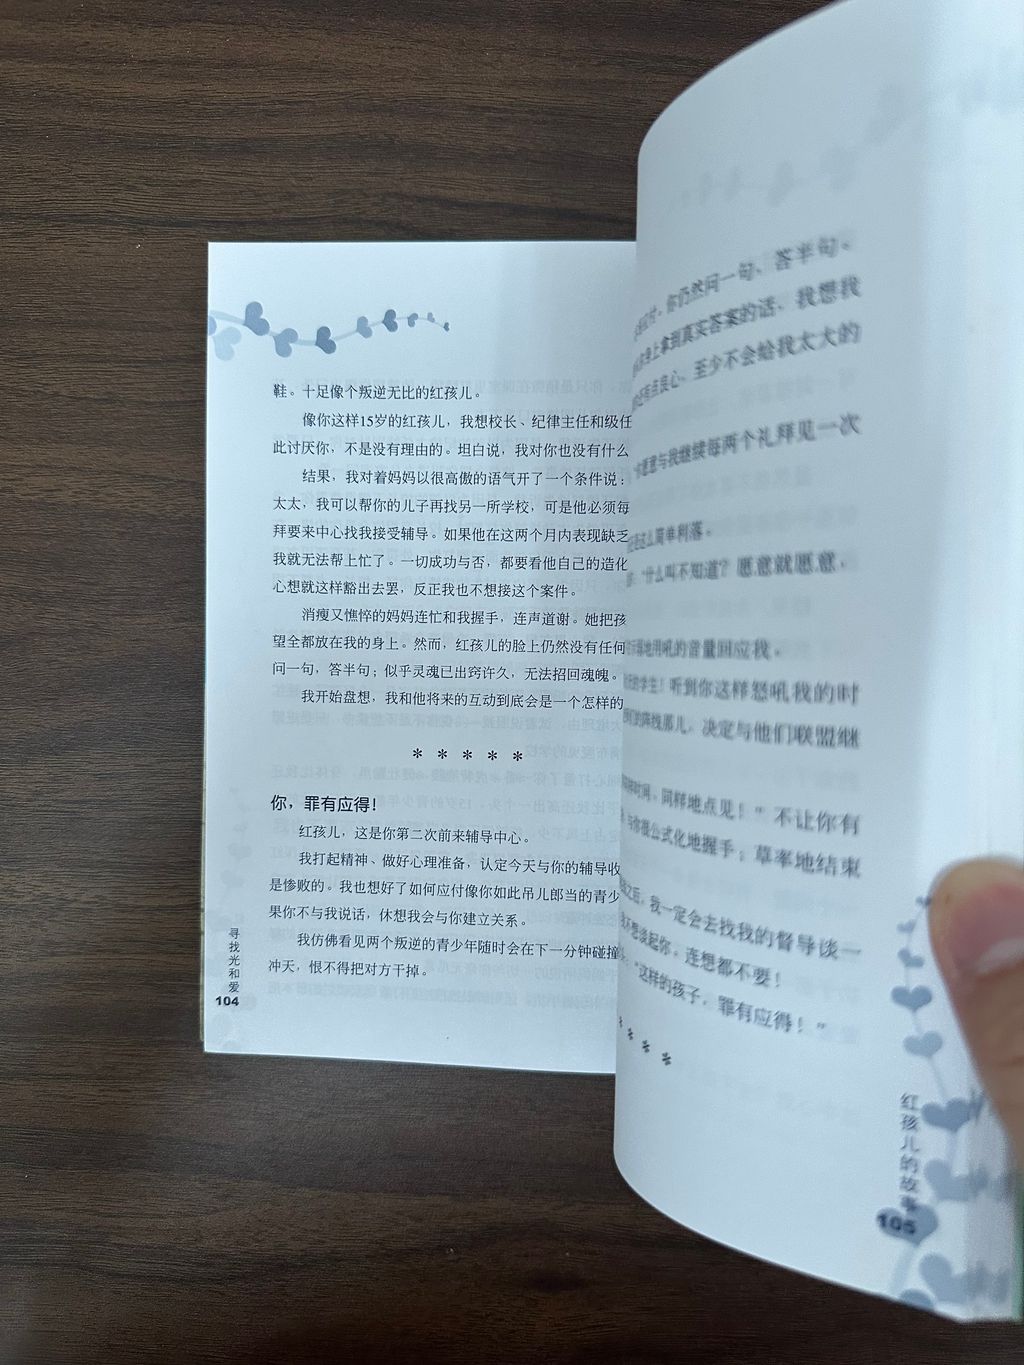 鞋。十足像个叛逆无比的红孩儿。
像你这样15岁的红孩儿，我想校长、纪律主任和级任
此讨厌你，不是没有理由的。坦白说，我对你也没有什么
结果，我对着妈妈以很高傲的语气开了一个条件说：
太太，我可以帮你的儿子再找另一所学校，可是他必须每
拜要来中心找我接受辅导。如果他在这两个月内表现缺乏
我就无法帮上忙了。一切成功与否，都要看他自己的造化
心想就这样豁出去罢，反正我也不想接这个案件。
消瘦又憔悴的妈妈连忙和我握手，连声道谢。她把孩
望全都放在我的身上。然而，红孩儿的脸上仍然没有任何
问一句，答半句；似乎灵魂已出窍许久，无法招回魂魄。
我开始盘想，我和他将来的互动到底会是一个怎样的
* * * * *
你，罪有应得！
红孩儿，这是你第二次前来辅导中心。
我打起精神、做好心理准备，认定今天与你的辅导收
是惨败的。我也想好了如何应付像你如此吊儿郎当的青少
果你不与我说话，休想我会与你建立关系。
我仿佛看见两个叛逆的青少年随时会在下一分钟碰撞
冲天，恨不得把对方干掉。
寻找光和爱
104
你仍然问一句、答半句。
身上拿到真实答案的话，我想我
有点良心，至少不会给我太大的
愿意与我继续每两个礼拜见一次
这么简单利落。
“什么叫不知道？愿意就愿意，
地用吼的音量回应我。
的学生！听到你这样怒吼我的时
们的阵线那儿，决定与他们联盟继
时间，同样地点见！”不让你有
与你很公式化地握手；草率地结束
之后，我一定会去找我的督导谈一
不想谈起你，连想都不要！
“这样的孩子，罪有应得！”
* * * *
红孩儿的故事
105